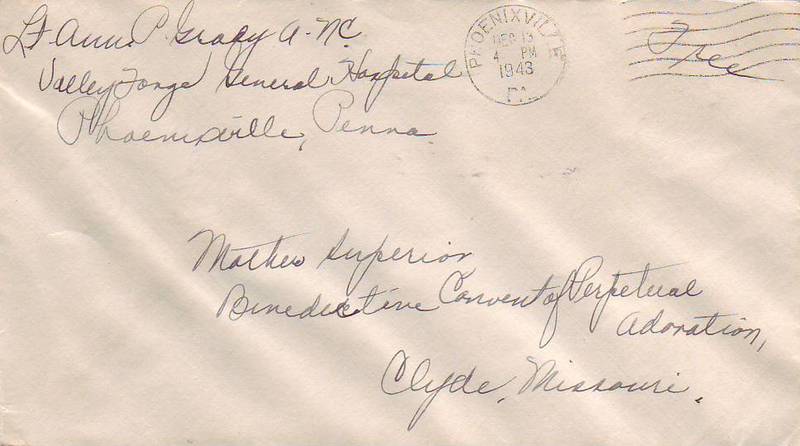 Lt. Ann. P. Grady A.N.C.
Valley Forge General Hospital
Phoenixville, Penna.
PHOENIXVILLE
4 PM
1943
PA.
Free
Mother Superior
Benedictine Convent of Perpetual
Adoration,
Clyde, Missouri.